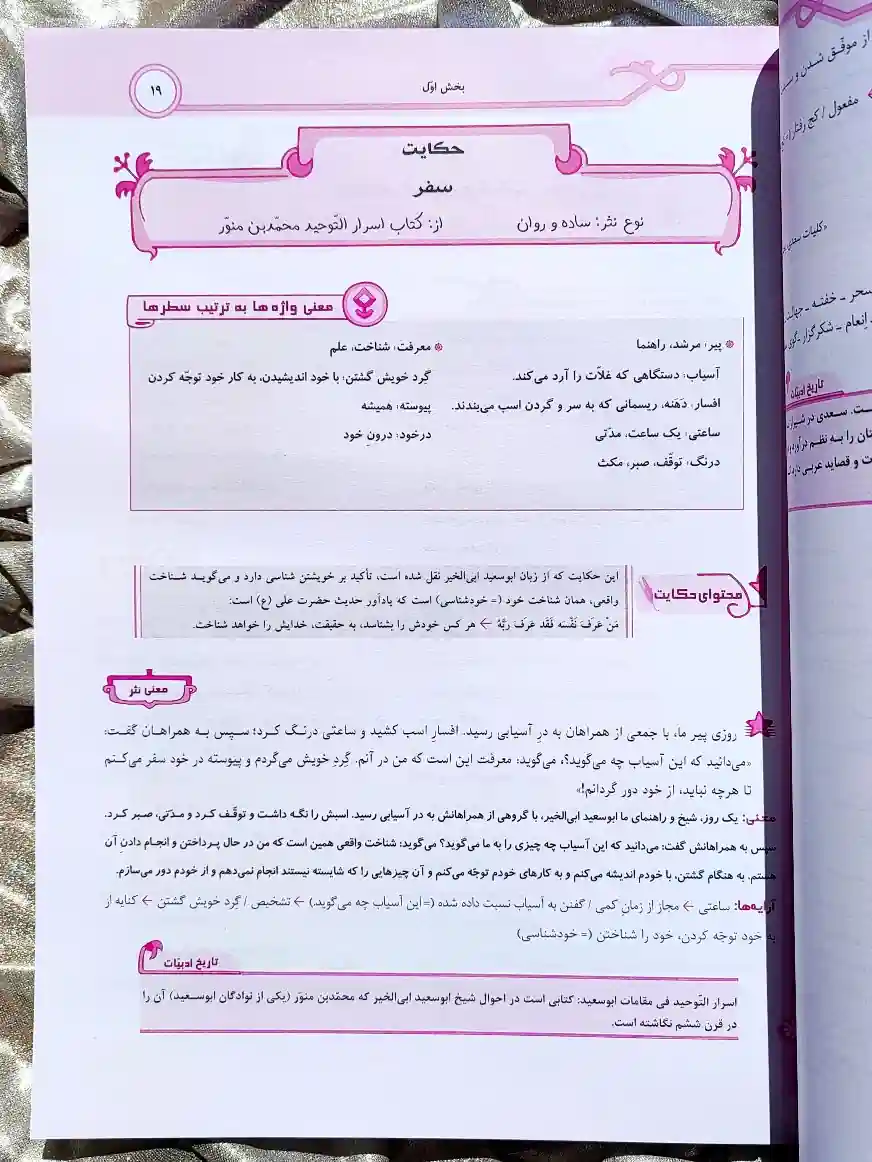 بخش اوّل
۱۹
حکایت
سفر
نوع نثر: ساده و روان از: کتاب اسرار التّوحید محمّدبن منوّر
معنی واژه‌ها به ترتیب سطرها
پیر: مرشد، راهنما
آسیاب: دستگاهی که غلاّت را آرد می‌کند.
افسار: دَهَنه، ریسمانی که به سر و گردن اسب می‌بندند.
ساعتی: یک ساعت، مدّتی
درنگ: توقّف، صبر، مکث
معرفت: شناخت، علم
گِرد خویش گشتن: با خود اندیشیدن، به کار خود توجّه کردن
پیوسته: همیشه
درخود: درونِ خود
محتوای حکایت
این حکایت که از زبان ابوسعید ابی‌الخیر نقل شده است، تأکید بر خویشتن شناسی دارد و می‌گویـد شـناخت
واقعی، همان شناخت خود (= خودشناسی) است که یادآور حدیث حضرت علی (ع) است:
مَنْ عَرَفَ نَفْسَه فَقَد عَرَفَ ربَّهُ ← هر کس خودش را بشناسد، به حقیقت، خدایش را خواهد شناخت.
معنی نثر
روزی پیر ما، با جمعی از همراهان به درِ آسیابی رسید. افسارِ اسب کشید و ساعتی درنـگ کـرد؛ سـپس بـه همراهـان گفـت:
«می‌دانید که این آسیاب چه می‌گوید؟، می‌گوید: معرفت این است که من در آنم. گِردِ خویش می‌گردم و پیوسته در خود سفر می‌کـنم
تا هرچه نباید، از خود دور گردانم!»
معنی: یک روز، شیخ و راهنمای ما ابوسعید ابی‌الخیر، با گروهی از همراهانش به در آسیابی رسید. اسبش را نگـه داشـت و توقّـف کـرد و مـدّتی، صـبر کـرد.
سپس به همراهانش گفت: می‌دانید که این آسیاب چه چیزی را به ما می‌گوید؟ می‌گوید: شناخت واقعی همین است که من در حال پـرداختن و انجـام دادنِ آن
هستم. به هنگام گشتن، با خودم اندیشه می‌کنم و به کارهای خودم توجّه می‌کنم و آن چیزهایی را که شایسته نیستند انجام نمی‌دهم و از خودم دور می‌سازم.
آرایه‌ها: ساعتی ← مجاز از زمانِ کمی / گفتن به آسیاب نسبت داده شده (=این آسیاب چه می‌گوید) ← تشخیص / گِرد خویش گشتن ← کنایه از
به خود توجّه کردن، خود را شناختن (= خودشناسی)
تاریخ ادبیّات
اسرار التّوحید فی مقامات ابوسعید: کتابی است در احوال شیخ ابوسعید ابی‌الخیر که محمّدبن منوّر (یکی از نوادگان ابوسـعید) آن را
در قرن ششم نگاشته است.
از موفّق شدن و
مفعول / کج رفتار
«کلیات سعدی
سحر ـ خفتـه ـ
إنعام ـ شکرگزار ـ گوی
تاریخ ادبیّات
ست. سـعدی در شیراز
تان را بـه نظـم درآورد
ت و قصاید عربـی دارد